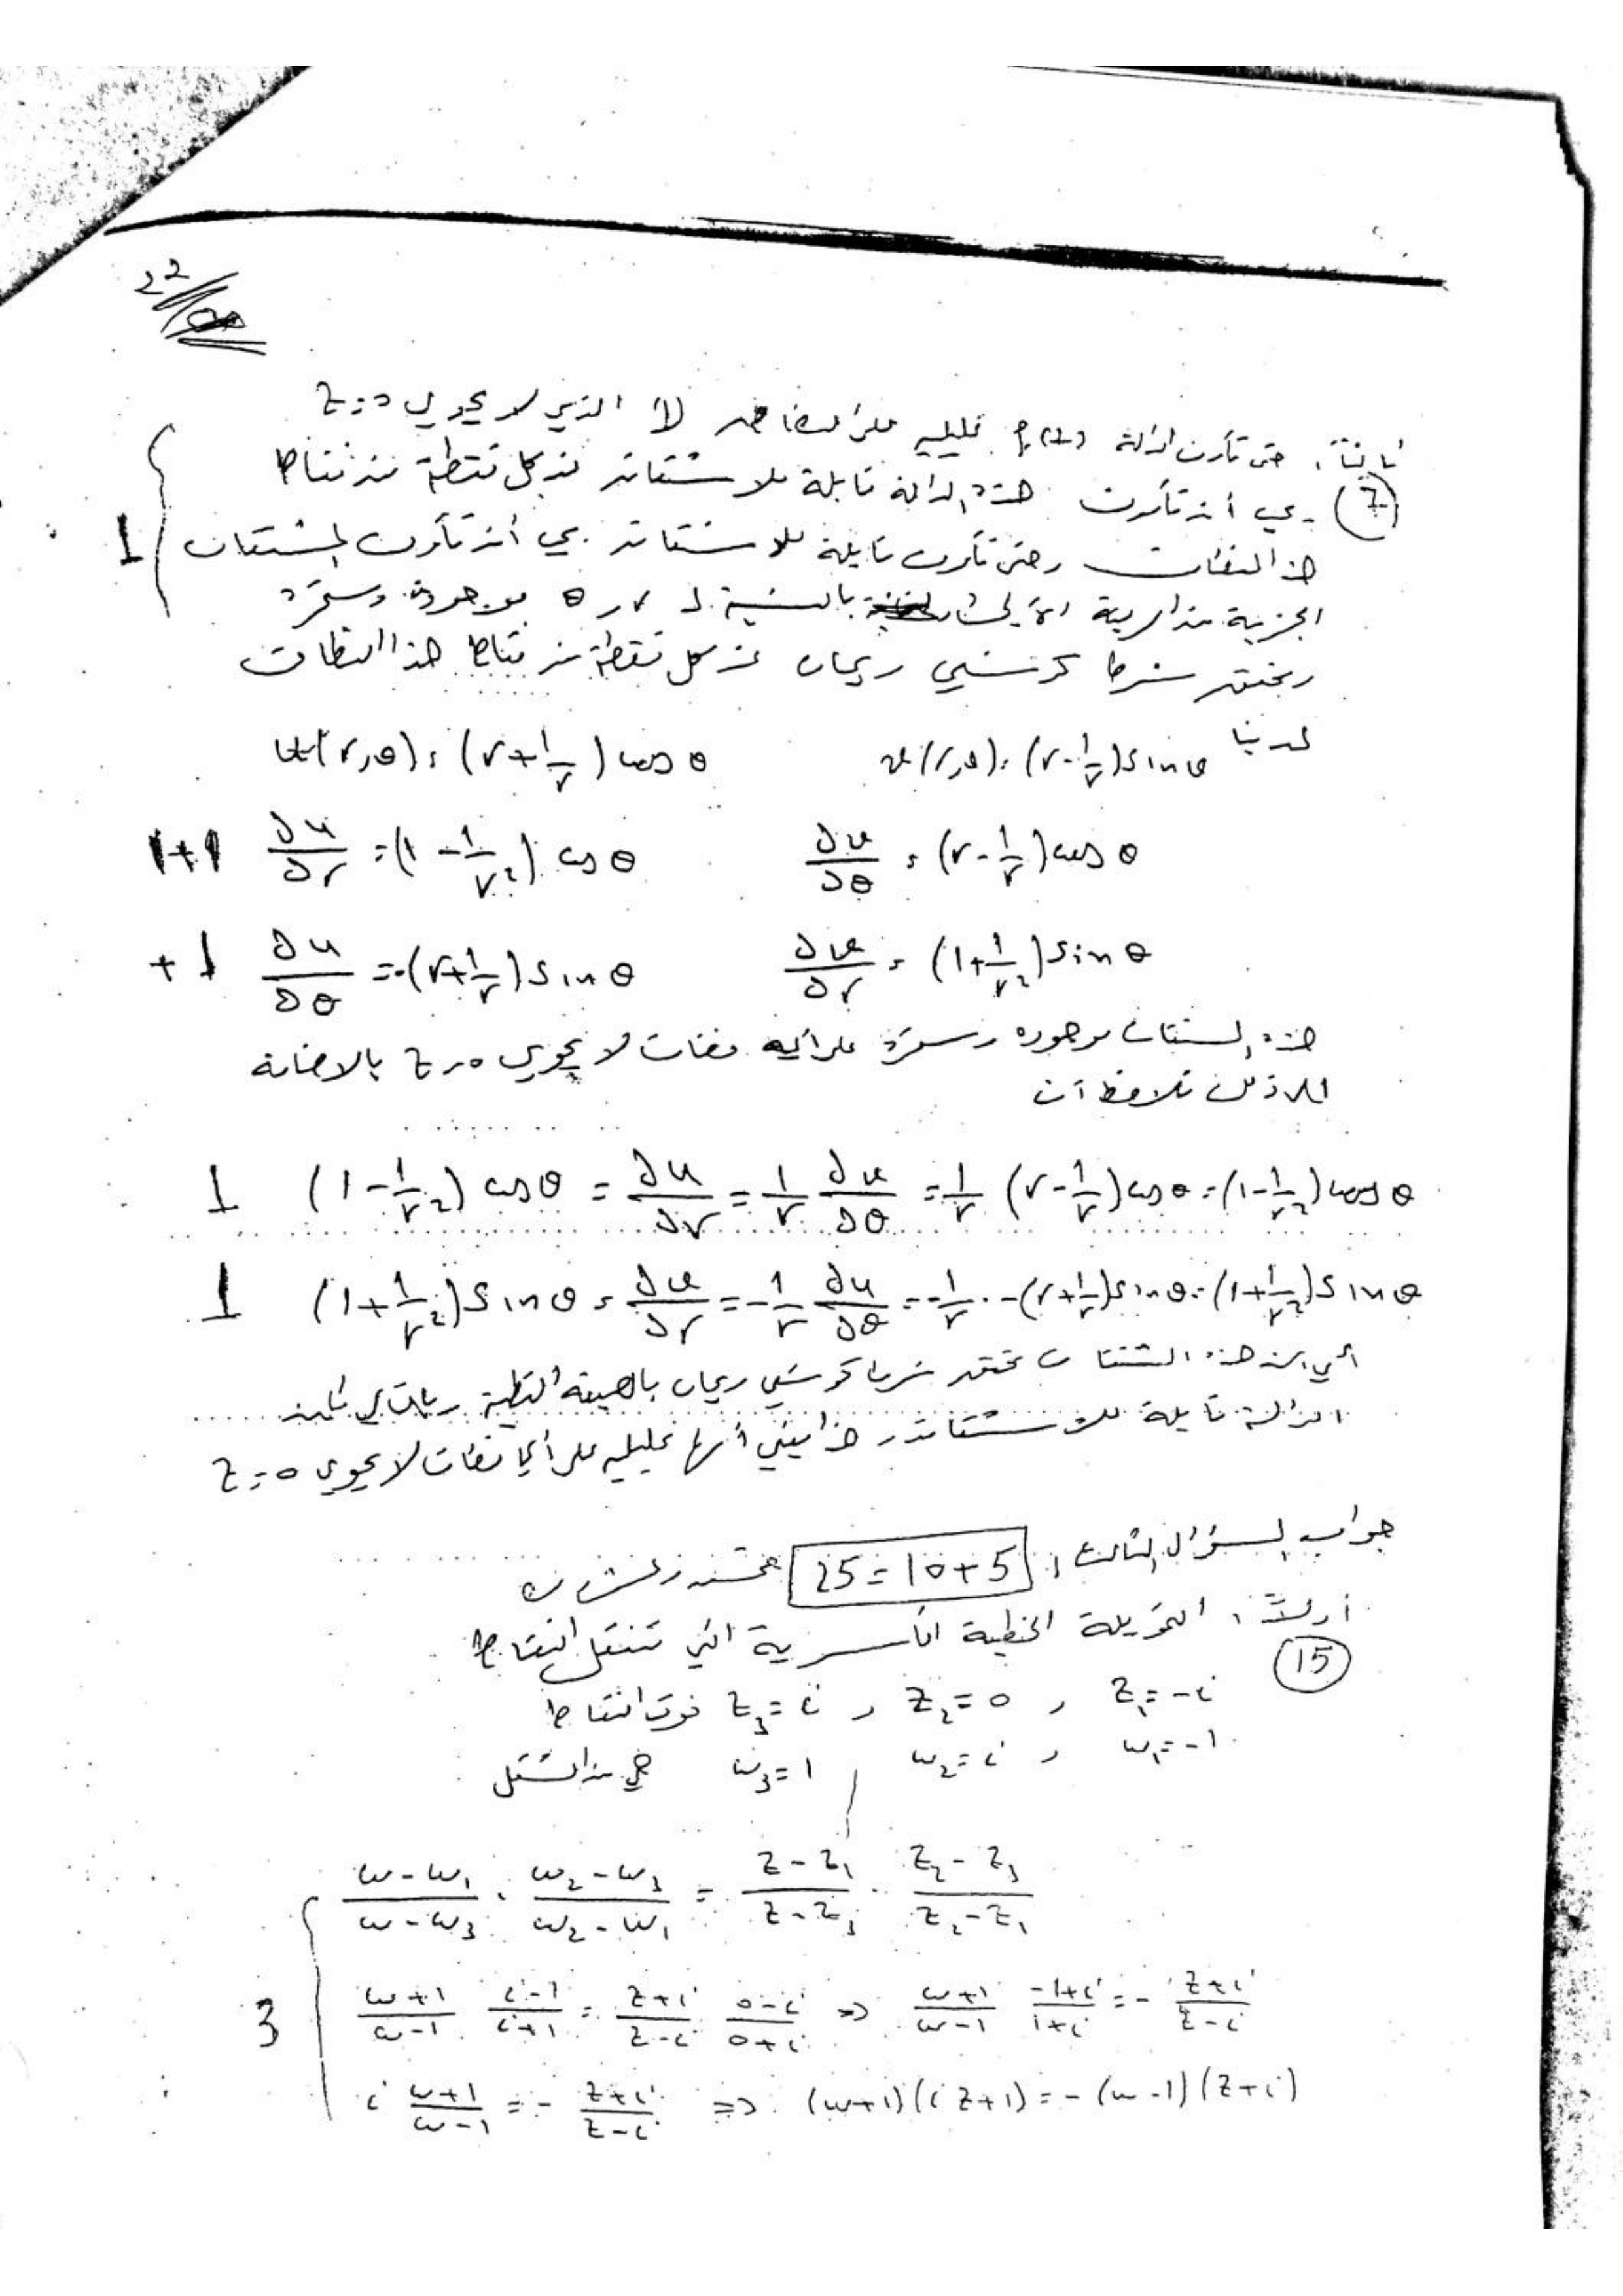 ثانياً: حتى تكون الدالة f(z) تحليلية على النطاق الذي لا يحوي z=0
(7) يجب أن تكون هذه الدالة قابلة للاشتقاق عند كل نقطة من نقاط
1 هذا النطاق وحتى تكون قابلة للاشتقاق يجب أن تكون المشتقات
الجزئية من المرتبة الأولى بالنسبة لـ r و θ موجودة ومستمرة
ويحقق شرطا كوشي ريمان عند كل نقطة من نقاط هذا النطاق
لدينا v(r,θ) = (r - 1/r) sin θ u(r,θ) = (r + 1/r) cos θ
1+1 ∂u/∂r = (1 - 1/r²) cos θ ∂v/∂θ = (r - 1/r) cos θ
+1 ∂u/∂θ = -(r + 1/r) sin θ ∂v/∂r = (1 + 1/r²) sin θ
هذه المشتقات موجودة ومستمرة على أية نطاق لا يحوي z=0 بالإضافة
إلى ذلك نلاحظ أن
1 (1 - 1/r²) cos θ = ∂u/∂r = 1/r ∂v/∂θ = 1/r (r - 1/r) cos θ = (1 - 1/r²) cos θ
1 (1 + 1/r²) sin θ = ∂v/∂r = -1/r ∂u/∂θ = -1/r · -(r + 1/r) sin θ = (1 + 1/r²) sin θ
أي أن هذه المشتقات تحقق شرطا كوشي ريمان بالصيغة القطبية وبالتالي فإن
الدالة قابلة للاشتقاق وهذا يعني أنها تحليلية على أي نطاق لا يحوي z=0
جواب السؤال الثالث: 25=10+5 خمسة وعشرون
أولاً: التحويلة الخطية الكسرية التي تنقل النقاط
(15)
z₁=-i , z₂=0 , z₃=i فوق النقاط
w₁=-1 , w₂=i , w₃=1 هي من الشكل
(w-w₁)/(w-w₃) · (w₂-w₃)/(w₂-w₁) = (z-z₁)/(z-z₃) · (z₂-z₃)/(z₂-z₁)
3 (w+1)/(w-1) (i-1)/(i+1) = (z+i)/(z-i) (0-i)/(0+i) => (w+1)/(w-1) (-1+i)/(1+i) = - (z+i)/(z-i)
i (w+1)/(w-1) = - (z+i)/(z-i) => (w+1)(iz+1) = -(w-1)(z+i)